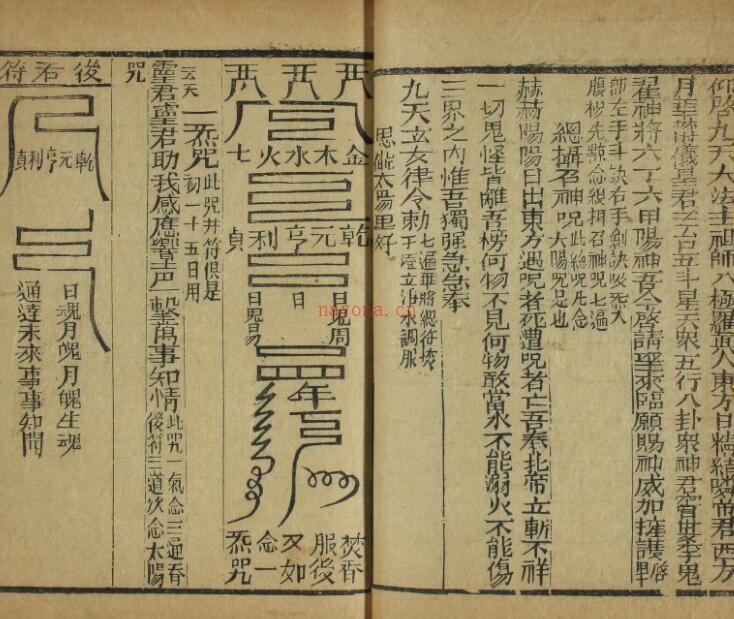 仰啓九天大法主祖師八極羅眞人東方日精結璘帝君西方
月華 儀星君 五斗星 衆五行八卦衆神君 世李鬼
翟神將六丁六甲陽神吾今啓請望來臨願賜神威加擁護啓畢
師左手斗訣右手劍訣 炁入
腹 先黙念 召神呪七遍
總攝召神呪此總呪凡念
太陽呪是也
赫赫陽陽日出東方遇呪者死遭呪者亡吾奉北帝立斬不祥
一切鬼怪皆離吾榜何物不見何物敢當水不能溺火不能傷
三界之内惟吾獨强急急奉
九天玄女律令勅七遍畢將總符焚
于燈立 水調服
思 太陽里好
nayona.cn
金木水火七
乾元亨利貞
日
年
焚香
服後
又如
念一
炁呪
云天
一炁呪此呪并符俱是
初一十五日用
靈君靈君助我感應響声一擊萬事知情此呪一氣念三遍香
後符三道次念太陽
呪
後右符
乾元亨利貞
日魂月魄月魄生魂
通達未來事事知聞